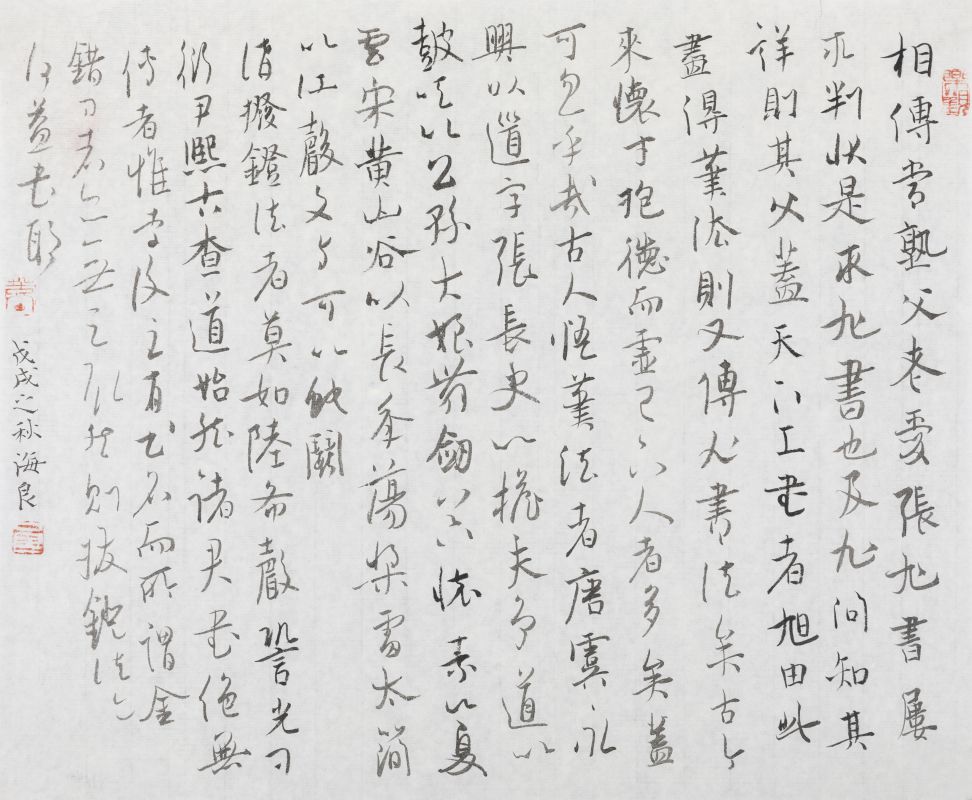 相傳常熟父老愛張旭書屢
求判狀是取旭書也及旭問知其
詳則其父蓋天下工書者旭由此
盡得筆法則又傳父書法矣古今
來懷才抱德而虛己下人者多矣蓋
可忽乎哉古人悟筆法者唐虞永
興以道字張長史以擔夫爭道以
鼓吹以公孫大娘舞劍以下懷素以夏
雲宋黃山谷以長年蕩槳雷太簡
以江聲文與可以蛇鬬
得撥鐙法者莫如陸希聲䛒光刁
衎尹熙古查道始然諸君書絕無
傳者惟李後主有書名而所謂金
錯刀者亦無足取然則撥鐙法亦
何益書耶
戊戌之秋海良